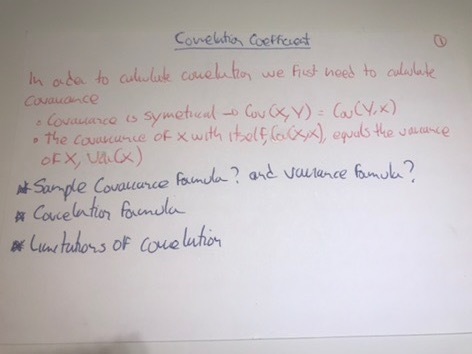 Correlation Coefficient
①
In order to calculate correlation we first need to calculate
covariance
• Covariance is symetrical → Cov(X,Y) = Cov(Y,X)
• The covariance of X with itself, Cov(X,X), equals the variance
of X, Var(X)
* Sample Covariance formula? and variance formula?
* Correlation formula
* Limitations of correlation